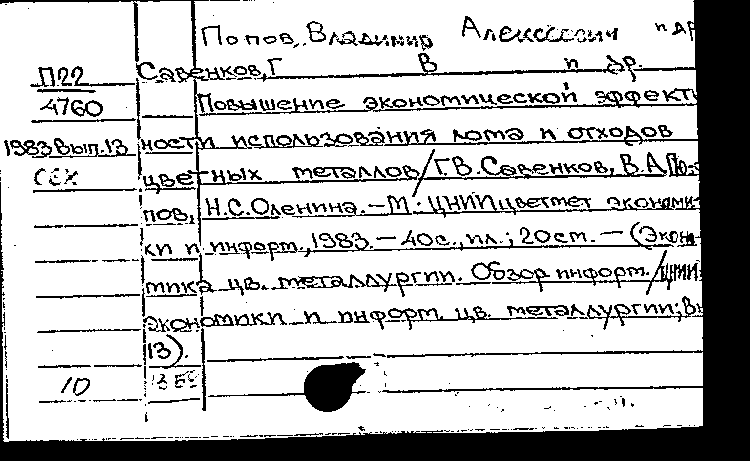 Попов, Владимир Алексеевич и др
П22 Савенков, Г В и др.
4760 Повышение экономической эффекти
1983 вып.13 ности использования лома и отходов
СЕХ цветных металлов/Г.В.Савенков, В.А.По-
пов, Н.С.Оленина.—М.: ЦНИИцветмет экономи-
ки и информ., 1983.—40с., ил.; 20см.—(Эконо-
мика цв. металлургии. Обзор информ./ЦНИИ
экономики и информ. цв. металлургии; Вы
13).
10